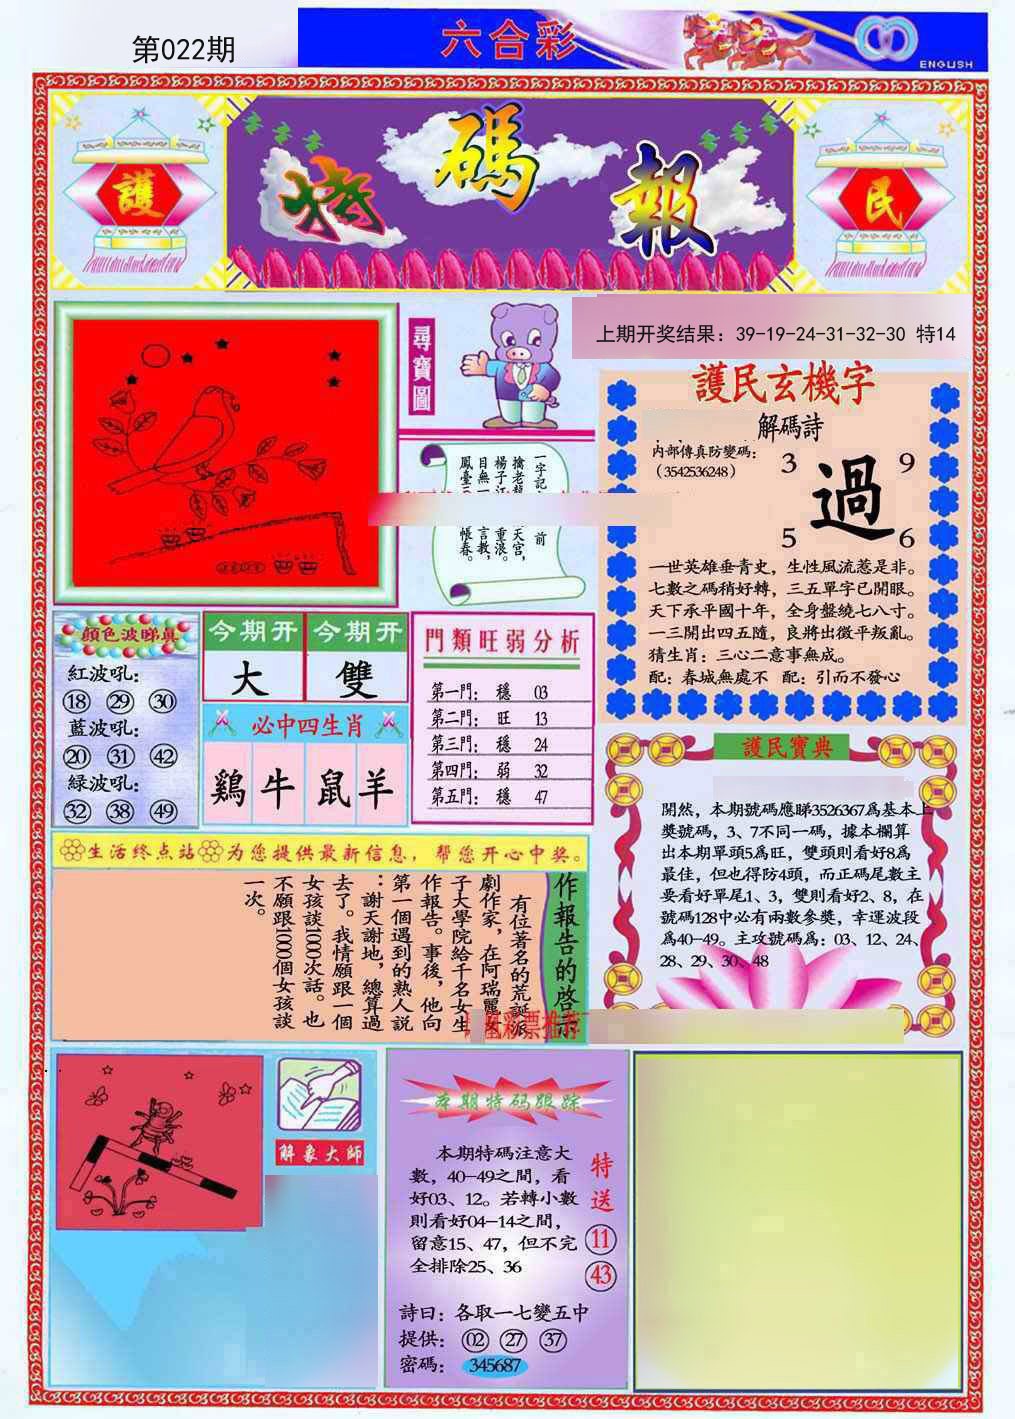 第022期
六合彩
ENGLISH
護
特碼報
民
尋寶圖
上期开奖结果：39-19-24-31-32-30 特14
護民玄機字
解碼詩
内部傳真防變碼：
（3542536248）
3 9
過
5 6
一世英雄垂青史，生性風流惹是非。
七數之碼稍好轉，三五單字已開眼。
天下承平國十年，全身盤繞七八寸。
一三開出四五隨，良將出徵平叛亂。
猜生肖：三心二意事無成。
配：春城無處不 配：引而不發心
一字記
前
擒老龍
天宮，
楊子江
重浪。
目無一
言教，
鳳臺
帳春。
顔色波睇真
紅波吼：
18 29 30
藍波吼：
20 31 42
緑波吼：
32 38 49
今期开 今期开
大 雙
必中四生肖
鷄牛鼠羊
門類旺弱分析
第一門： 穩 03
第二門： 旺 13
第三門： 穩 24
第四門： 弱 32
第五門： 穩 47
護民寶典
開然，本期號碼應睇3526367爲基本上
獎號碼，3、7不同一碼，據本欄算
出本期單頭5爲旺，雙頭則看好8爲
最佳，但也得防4頭，而正碼尾數主
要看好單尾1、3，雙則看好2、8，在
號碼128中必有兩數參獎，幸運波段
爲40-49。主攻號碼爲：03、12、24、
28、29、30、48
生活终点站 为您提供最新信息，帮您开心中奖。
作報告的啓示
有位著名的荒誕派
劇作家，在阿瑞麗女
子大學院給千名女生
作報告。事後，他向
第一個遇到的熟人說
：謝天謝地，總算過
去了。我情願跟一個
女孩談1000次話。也
不願跟1000個女孩談
一次。
彩票推荐
解象大師
本期特码跟踪
本期特碼注意大
數，40-49之間，看
好03、12。若轉小數
則看好04-14之間，
留意15、47，但不完
全排除25、36
特送
11
43
詩曰：各取一七變五中
提供： 02 27 37
密碼： 345687